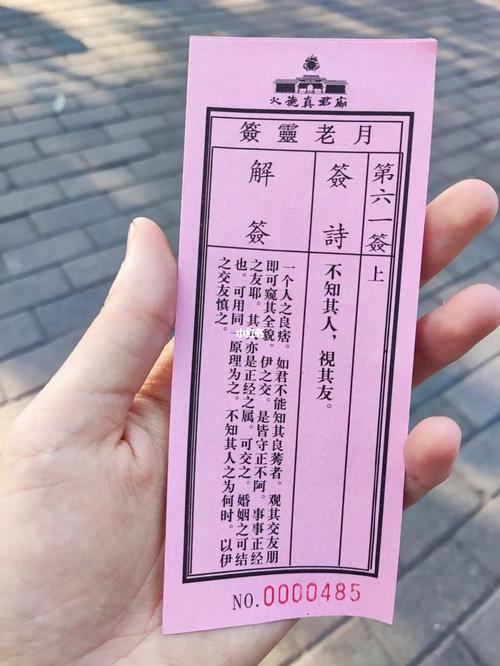 火德真君廟
月老靈簽
第六一簽 上
簽詩
不知其人，視其友。
解簽
一个人之良痞。如君不能知其良莠者。观其交友朋
即可窥其全貌。伊之交。是皆守正不阿。事事正经
之友耶。其亦是正经之属。可交之。婚姻之可结
也。可用同一原理为之。不知其人之为何时。以伊
之交友慎之。
NO.0000485